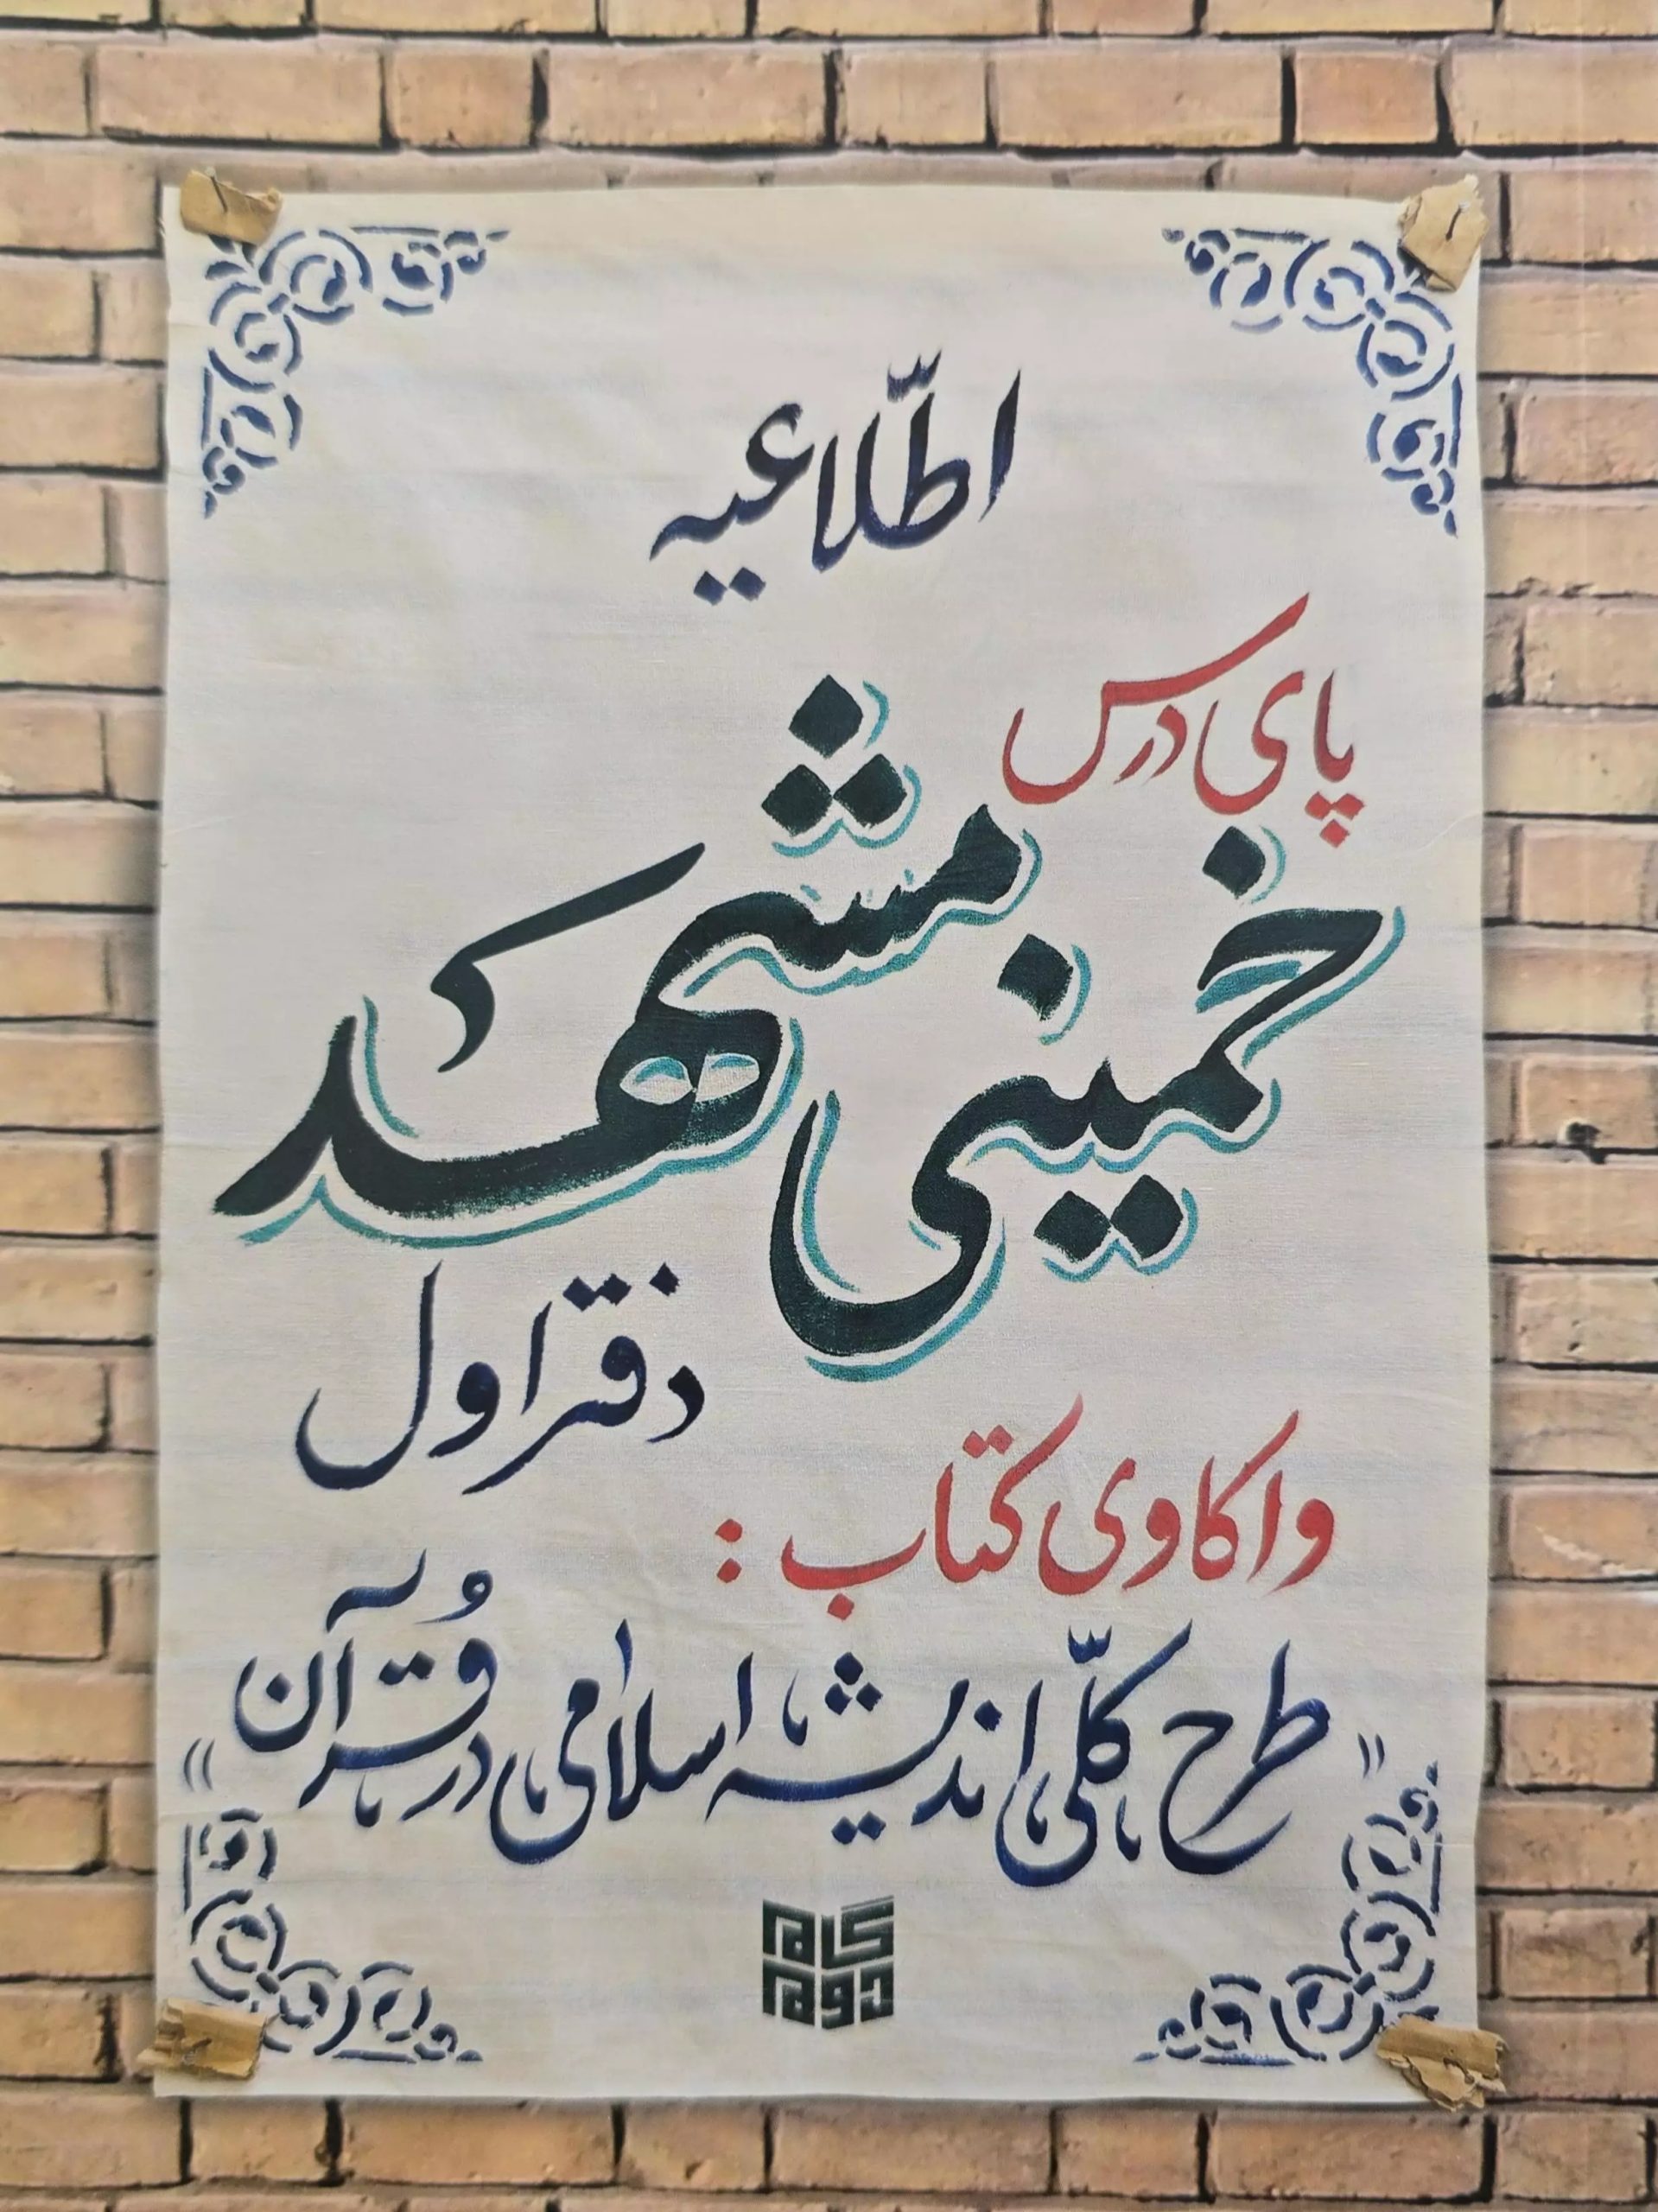 اطّلاعیه
پای درس
خمینی مشهد
دفتر اول
واکاوی کتاب :
"طرح کلّی اندیشه اسلامی در قُرآن"
گام
دوم